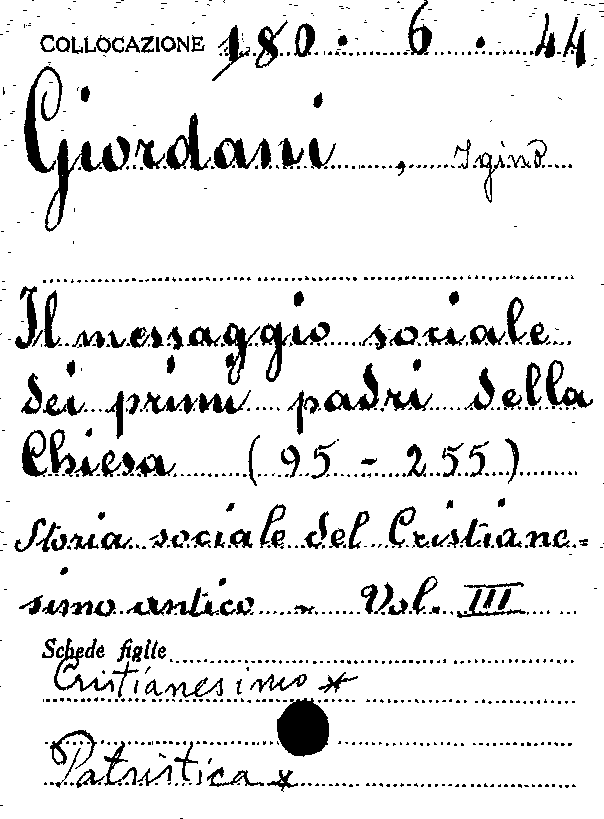 COLLOCAZIONE 180. 6. 44
Giordani, Igino
Il messaggio sociale
dei primi padri della
Chiesa (95 - 255)
Storia sociale del Cristiane=
simo antico - Vol. III
Schede figlie
Cristianesimo *
Patristica *